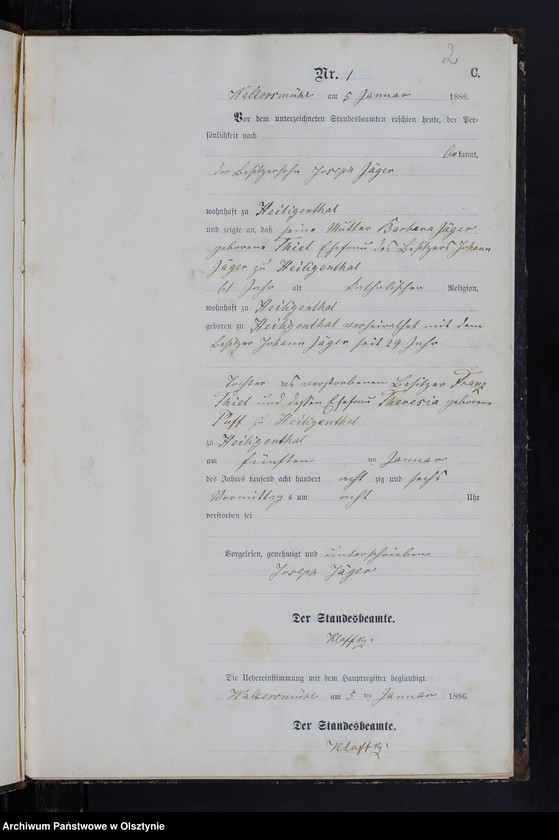 2
Nr. 1 C.
Waltersmühl am 5 Januar 1886.
Vor dem unterzeichneten Standesbeamten erschien heute, der Per-
sönlichkeit nach
bekannt,
der Besitzersohn Joseph Jäger
wohnhaft zu Heiligenthal
und zeigte an, daß seine Mutter Barbara Jäger
geborene Thiel Ehefrau des Besitzers Johann
Jäger zu Heiligenthal
61 Jahr alt katholischer Religion,
wohnhaft zu Heiligenthal
geboren zu Heiligenthal verheirathet mit dem
Besitzer Johann Jäger seit 29 Jahr
Tochter des verstorbenen Besitzer Franz
Thiel und dessen Ehefrau Theresia geborene
Paff zu Heiligenthal
zu Heiligenthal
am fünften ten Januar
des Jahres tausend acht hundert acht zig und sechs
Vormittag s um acht Uhr
verstorben sei
Vorgelesen, genehmigt und unterschrieben
Joseph Jäger
Der Standesbeamte.
Klaffky.
Die Uebereinstimmung mit dem Hauptregister beglaubigt.
Waltersmühl am 5 ten Januar 1886.
Der Standesbeamte.
Klaffky.
Archiwum Państwowe w Olsztynie